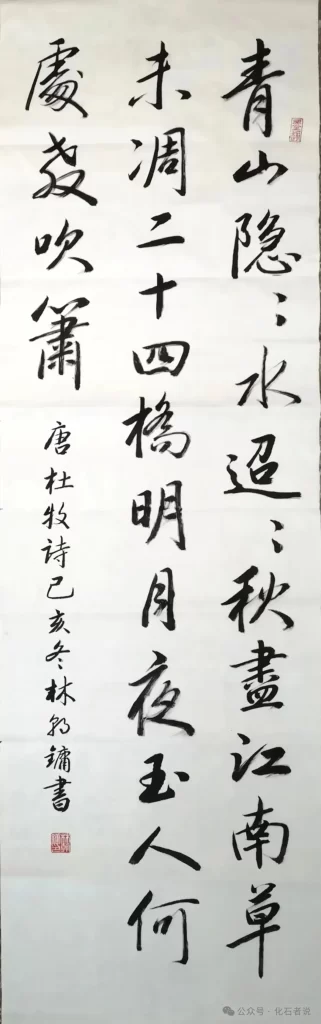 青山隐〻水迢〻秋盡江南草
未凋二十四橋明月夜玉人何
處教吹簫
唐杜牧詩己亥冬林書
公众号·化石者说